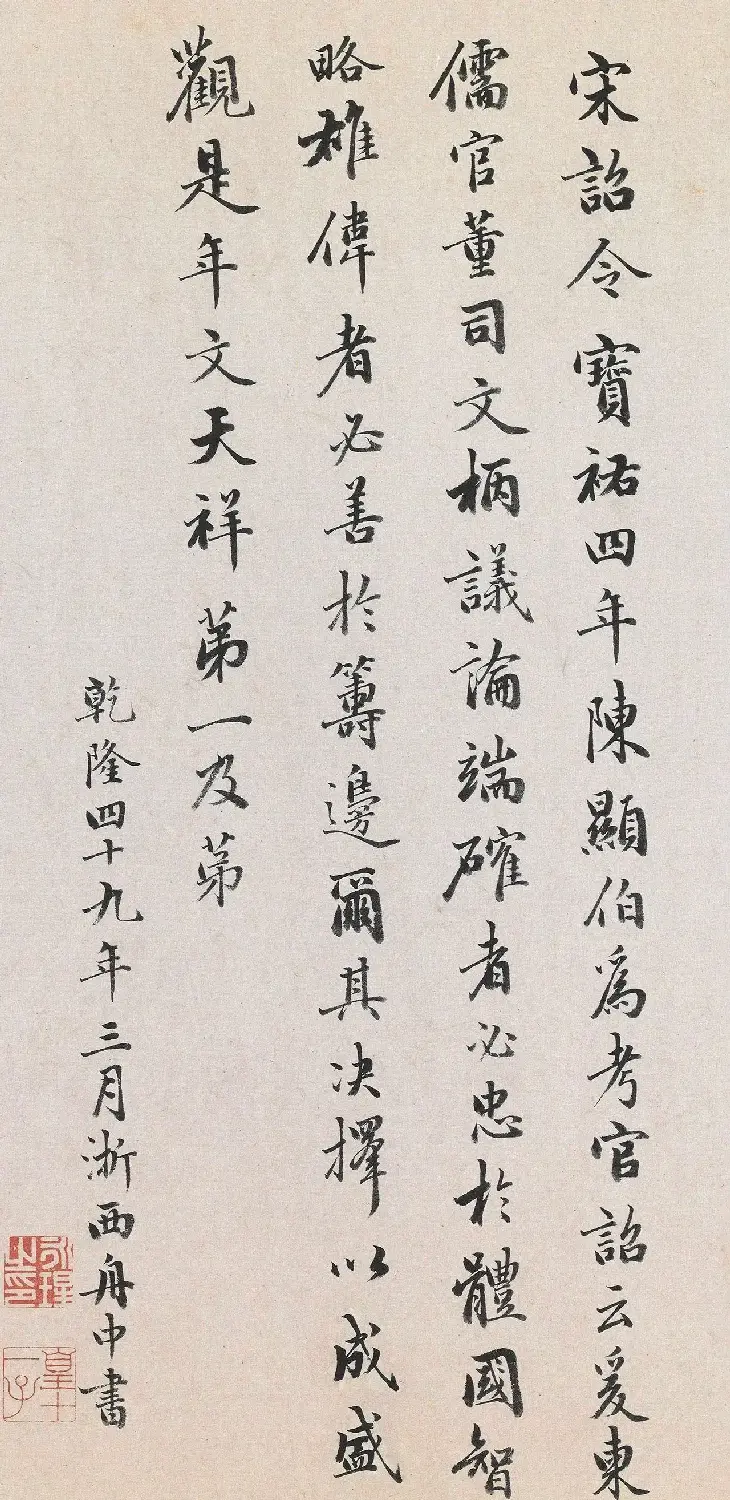 宋詔令寶祐四年陳顯伯為考官詔云爰東
儒官董司文柄議論端確者必忠於體國智
略雄偉者必善於籌邊爾其决擇以成盛
觀是年文天祥第一及第
乾隆四十九年三月浙西舟中書
永瑆之印
皇十一子